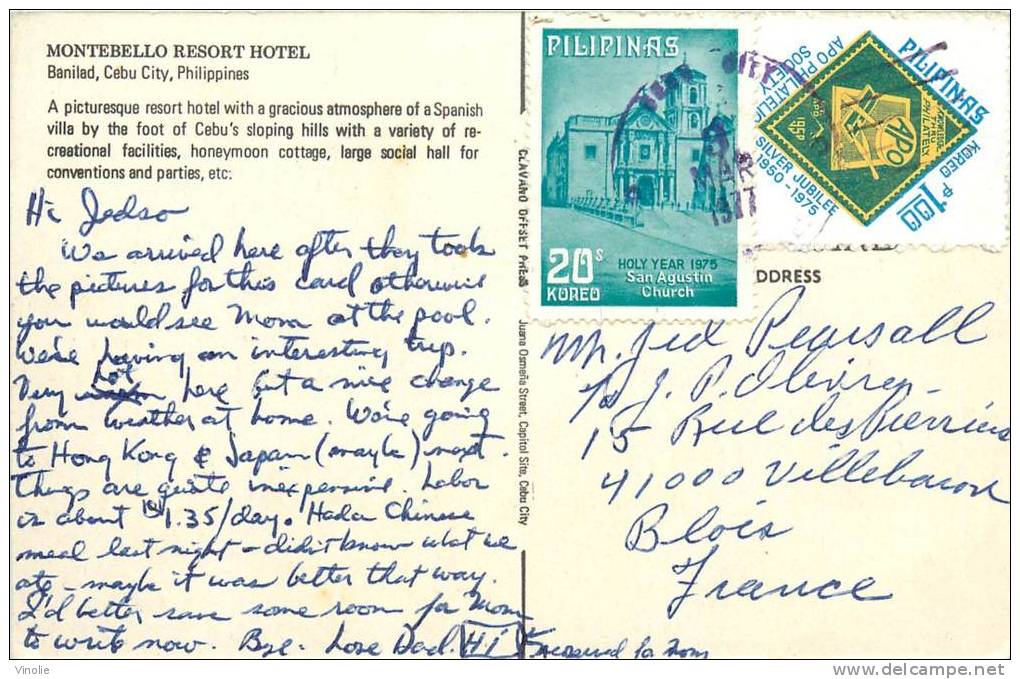 MONTEBELLO RESORT HOTEL
Banilad, Cebu City, Philippines
A picturesque resort hotel with a gracious atmosphere of a Spanish
villa by the foot of Cebu's sloping hills with a variety of re-
creational facilities, honeymoon cottage, large social hall for
conventions and parties, etc:
Hi Jedso
We arrived here after they took
the pictures for this card otherwise
you would see Mom at the pool.
We're having an interesting trip.
Very hot here but a nice change
from weather at home. We're going
to Hong Kong & Japan (maybe) next.
Things are quite inexpensive. Labor
is about $1.35/day. Had a Chinese
meal last night - didn't know what we
ate - maybe it was better that way.
I'd better save some room for Mom
to write now. Bye. Love Dad. Hi
for Mom
CLAVANO OFFSET PRESS
Juana Osmeña Street, Capitol Site, Cebu City
PILIPINAS
20s
KOREO
HOLY YEAR 1975
San Agustin
Church
MAR
1977
APO PHILATELIC
SOCIETY
SILVER JUBILEE
1950-1975
APO
PHILATELY
1950
PILIPINAS
KOREO
₱1.00
DDRESS
Mr. Jed Pearsall
J. P.
15 Rue des
41000 Villebarou
Blois
France
Vinolie
delcampe.net